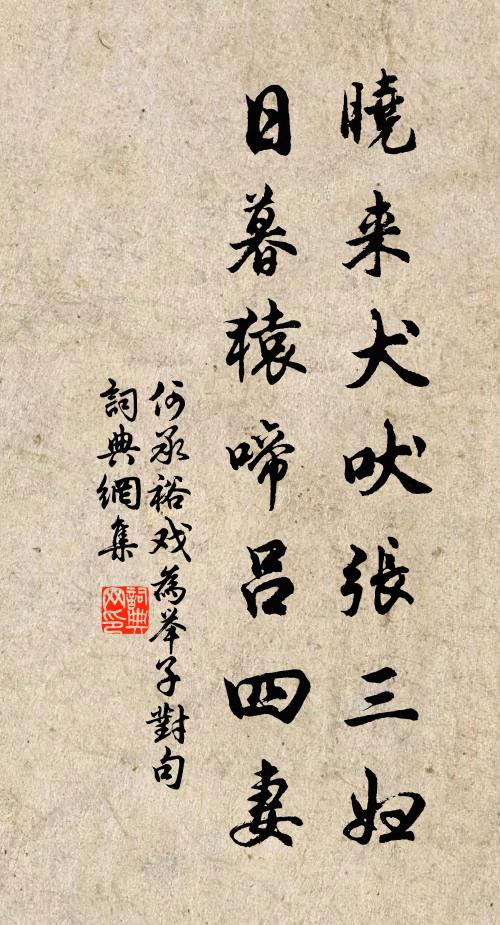 曉来犬吠張三婦
日暮猿啼呂四妻
何承裕戏為举子對句
詞典網集
詞典网印